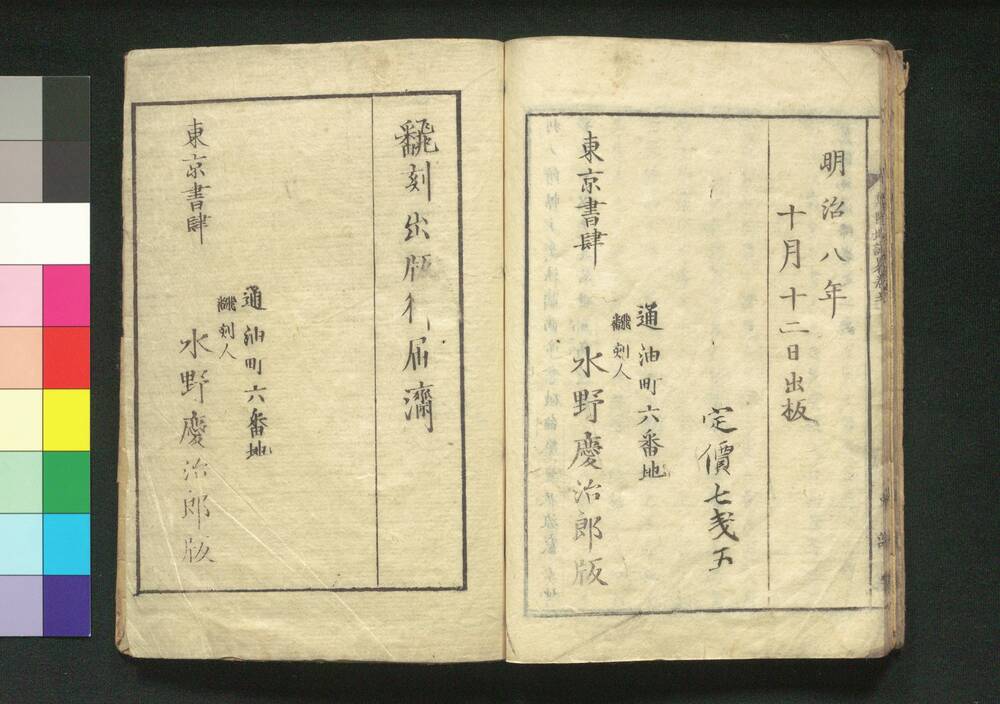 明治八年
十月十二日出板
定價七戔五
通油町六番地
飜刻人
水野慶治郎版
東京書肆
飜刻出版御届濟
通油町六番地
飜刻人
水野慶治郎版
東京書肆